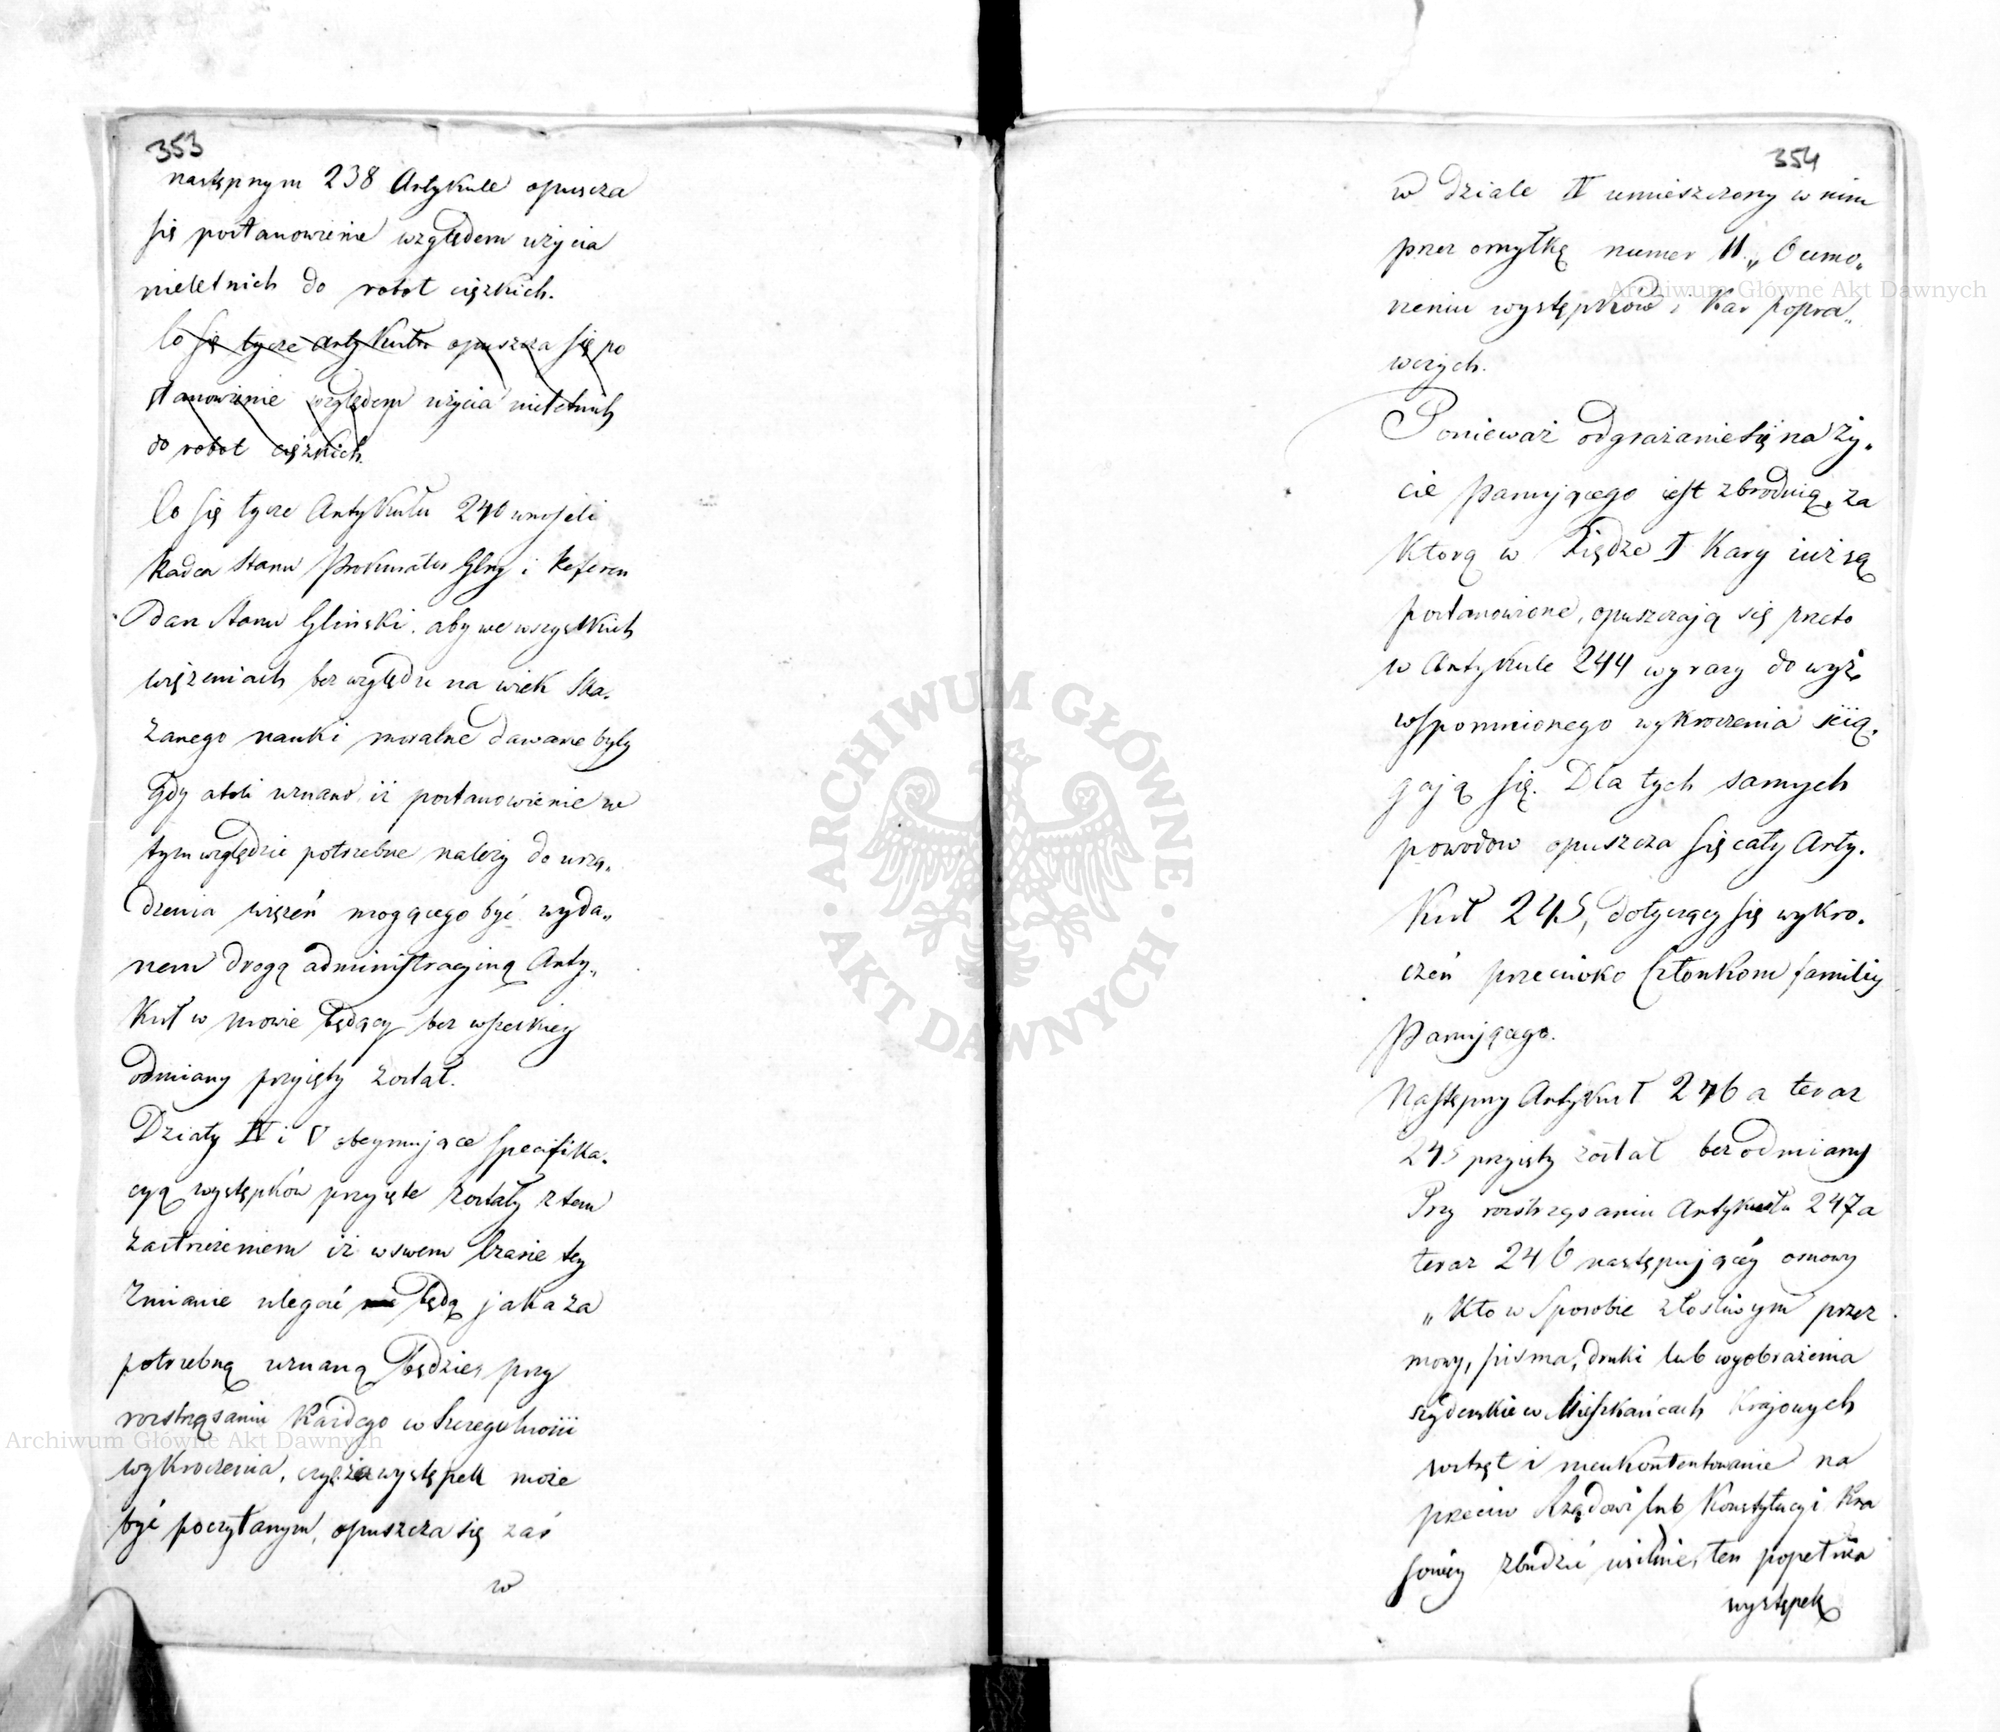 353
następnym 238 Artykule opuscza
się postanowienie względem użycia
nieletnich do robot ciężkich.
Co się tycze artykułu opuszcza się po
stanowienie względem użycia nieletnich
do robot ciężkich.
Co się tycze Artykułu 240 wnosieli
Radca Stanu Prokurator Glny i Referen
darz Stanu Gliński. aby we wszystkich
więzieniach bez względu na wiek ska„
zanego nauki moralne dawane były
gdy atoli uznano iż postanowienie w
tym względzie potrzebne należy do urzą„
dzenia więzień mogącego być wyda„
nem drogą administracyiną Arty„
kuł w mowie będący bez wszelkiey
odmiany przyięty został.
Działy IV i V obeymujące specifika„
cyą występków przyięte zostały z tem
zastrzeżeniem iż w swem czasie tey
zmianie ulegać będą jaka za
potrzebną uznaną będzie, przy
roztrząsaniu każdego w szczegulności
wykroczenia, czyli za występek może
być poczytanym, opuszcza się zaś
w
354
w dziale IV umieszczony w nim
przez omyłkę numer 11. „O umo„
rzeniu występków i kar popra„
wczych.
Ponieważ odgrażanie się na ży„
cie Panującego jest zbrodnią, za
którą w Xiędze I kary iuż są
postanowione, opuszczają się przeto
w Artykule 244 wyrazy do wyż„
wspomnionego wykroczenia ścią„
gają się. Dla tych samych
powodow opuszcza się cały Arty„
kuł 245, dotyczący się wykro„
czeń przeciwko Członkom familiy
Panującego.
Następny Artykuł 246 a teraz
245 przyięty został bez odmiany
Przy roztrząsaniu Artykułu 247 a
teraz 246 następuiącéy osnowy
„Kto w sposobie złosliwym przez
mowy, pisma, druki lub wyobrażenia
szyderskie w Mieszkańcach Krajowych
wstręt i nieukontentowanie na
przeciw Rządowi lub Konstytucyi Kra
jowéy zbudzić usiłuie, ten popełnia
występek
Archiwum Główne Akt Dawnych
Archiwum Główne Akt Dawnych
ARCHIWUM GŁÓWNE
AKT DAWNYCH